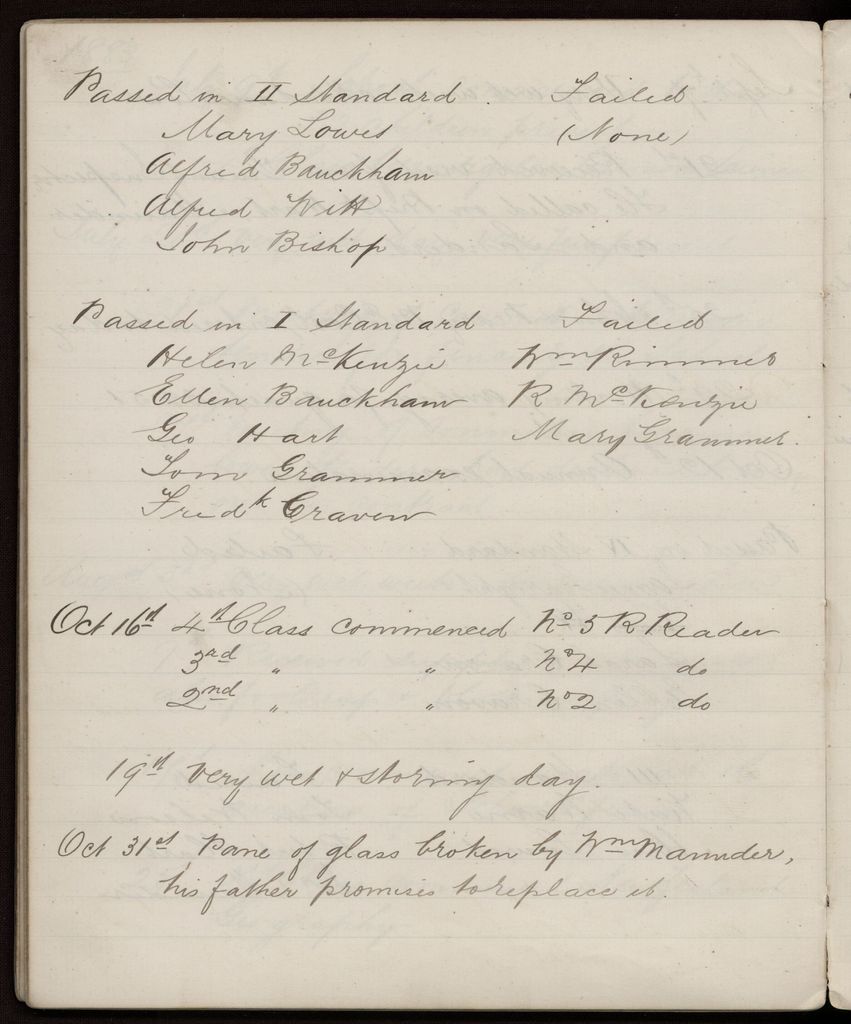 Passed in II Standard. Failed
Mary Lowis (None)
Alfred Bauckham
Alfred Witt
John Bishop
Passed in I Standard Failed
Helen McKenzie Wm Rimmer
Ellen Bauckham R McKenzie
Geo Hart Mary Grammer.
Tom Grammer
Fredk Craven
Oct 16st 4st Class commenced No 5 R Reader
3rd " " No 4 do
2nd " " No 2 do
19st Very wet & stormy day.
Oct 31st Pane of glass broken by Wm Maunder,
his father promises to replace it.